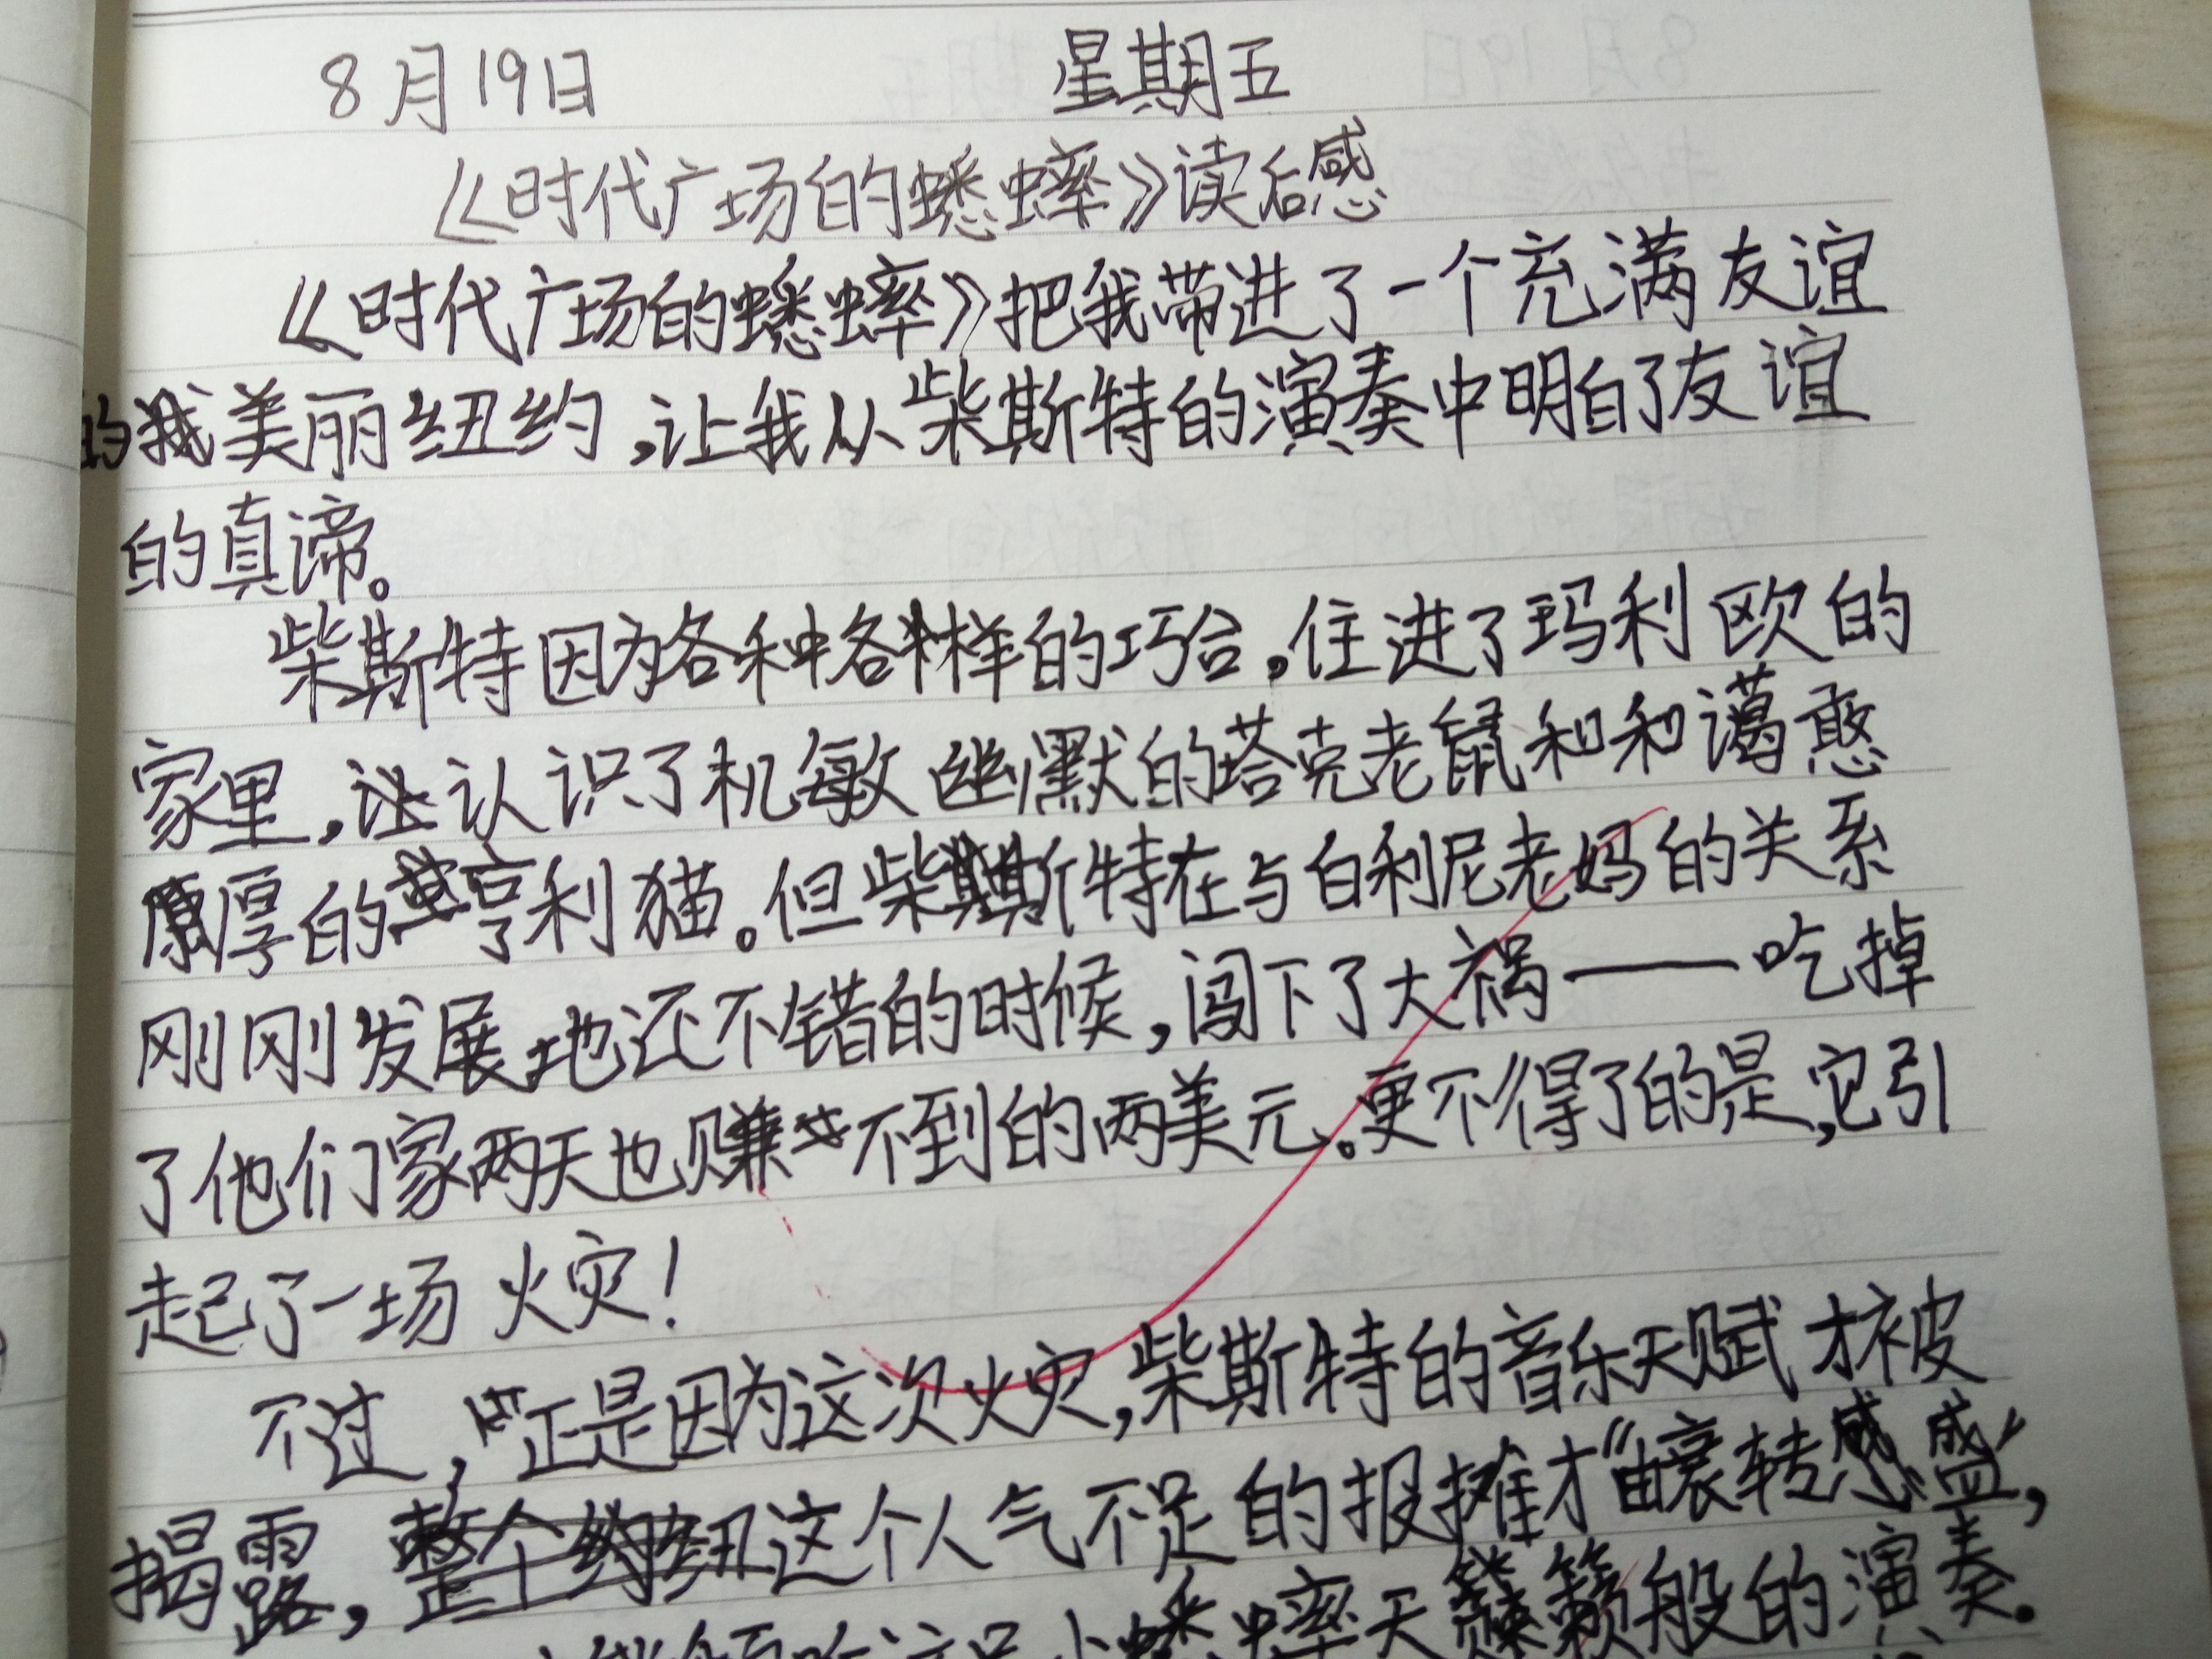 8月19日 星期五
《时代广场的蟋蟀》读后感
《时代广场的蟋蟀》把我带进了一个充满友谊
的美丽纽约,让我从柴斯特的演奏中明白了友谊
的真谛。
柴斯特因为各种各样的巧合,住进了玛利欧的
家里,认识了机敏幽默的塔克老鼠和和蔼憨
厚的亨利猫。但柴斯特在与白利尼老妈的关系
刚刚发展地还不错的时候,闯下了大祸——吃掉
了他们家两天也赚不到的两美元。更不得了的是,它引
起了一场火灾!
不过,正是因为这次火灾,柴斯特的音乐天赋才被
揭露,这个人气不足的报摊才“转盛”,
这只小蟋蟀天籁般的演奏。